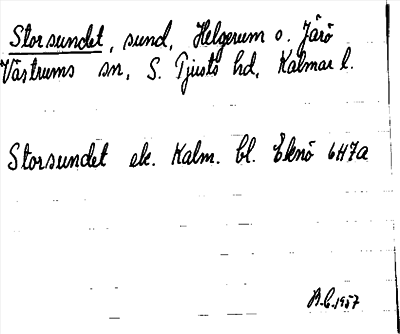 Storsundet, sund, Helgerum o. Järö
Västrums sn, S. Tjusts hd, Kalmar l.
Storsundet ek. Kalm. bl. Eknö 6H7a
B.C. 1957